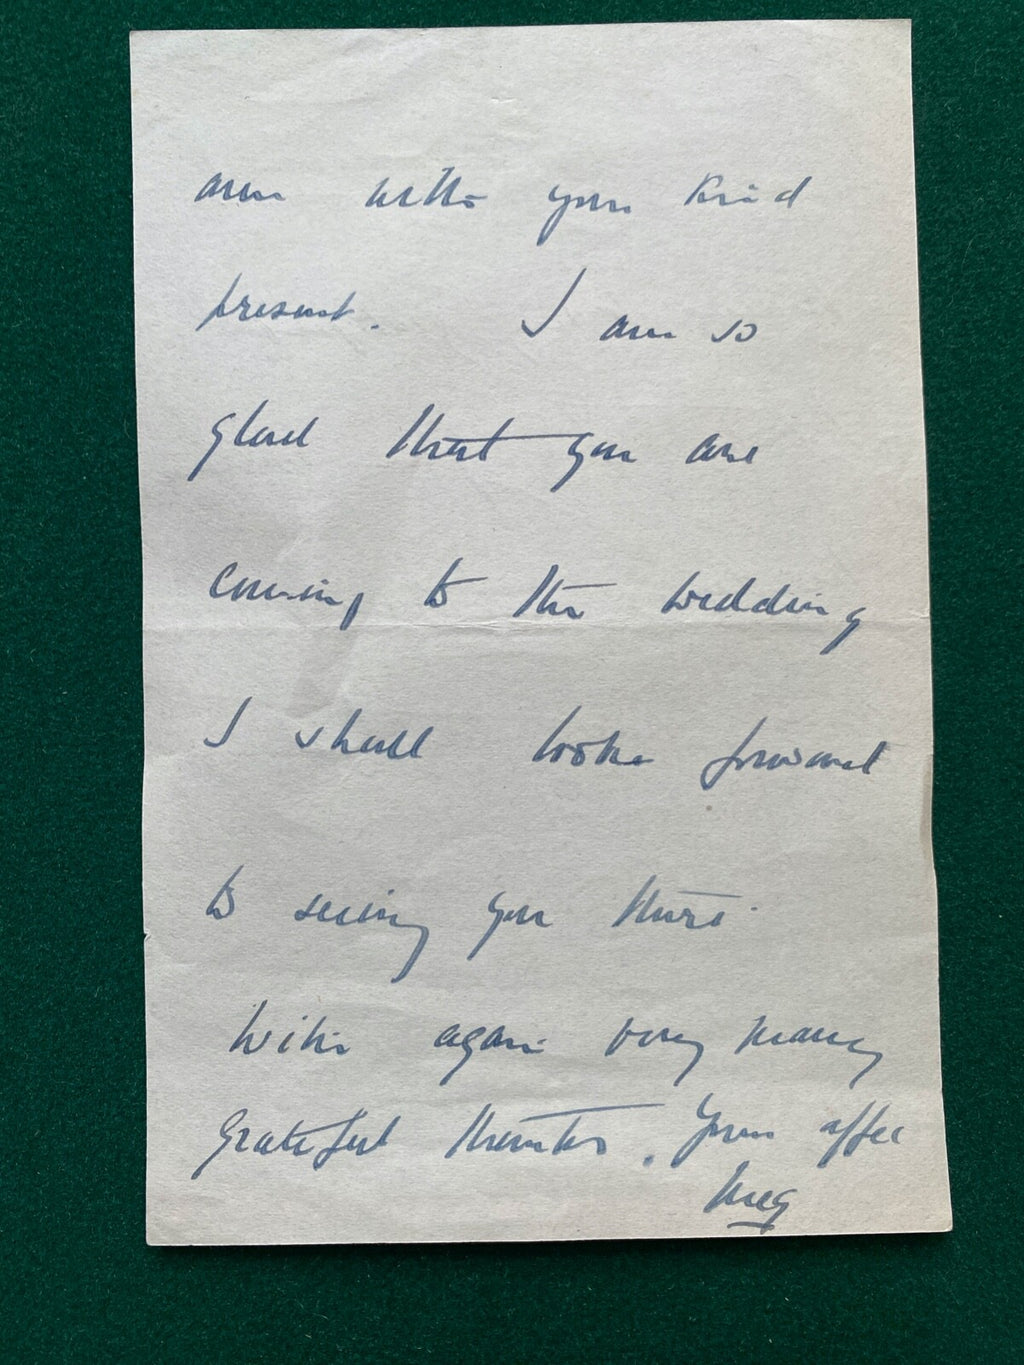 am with your kind
present. I am so
glad that you are
coming to the wedding
I shall look forward
to seeing you there.
With again very many
grateful thanks. Yours affec
Meg